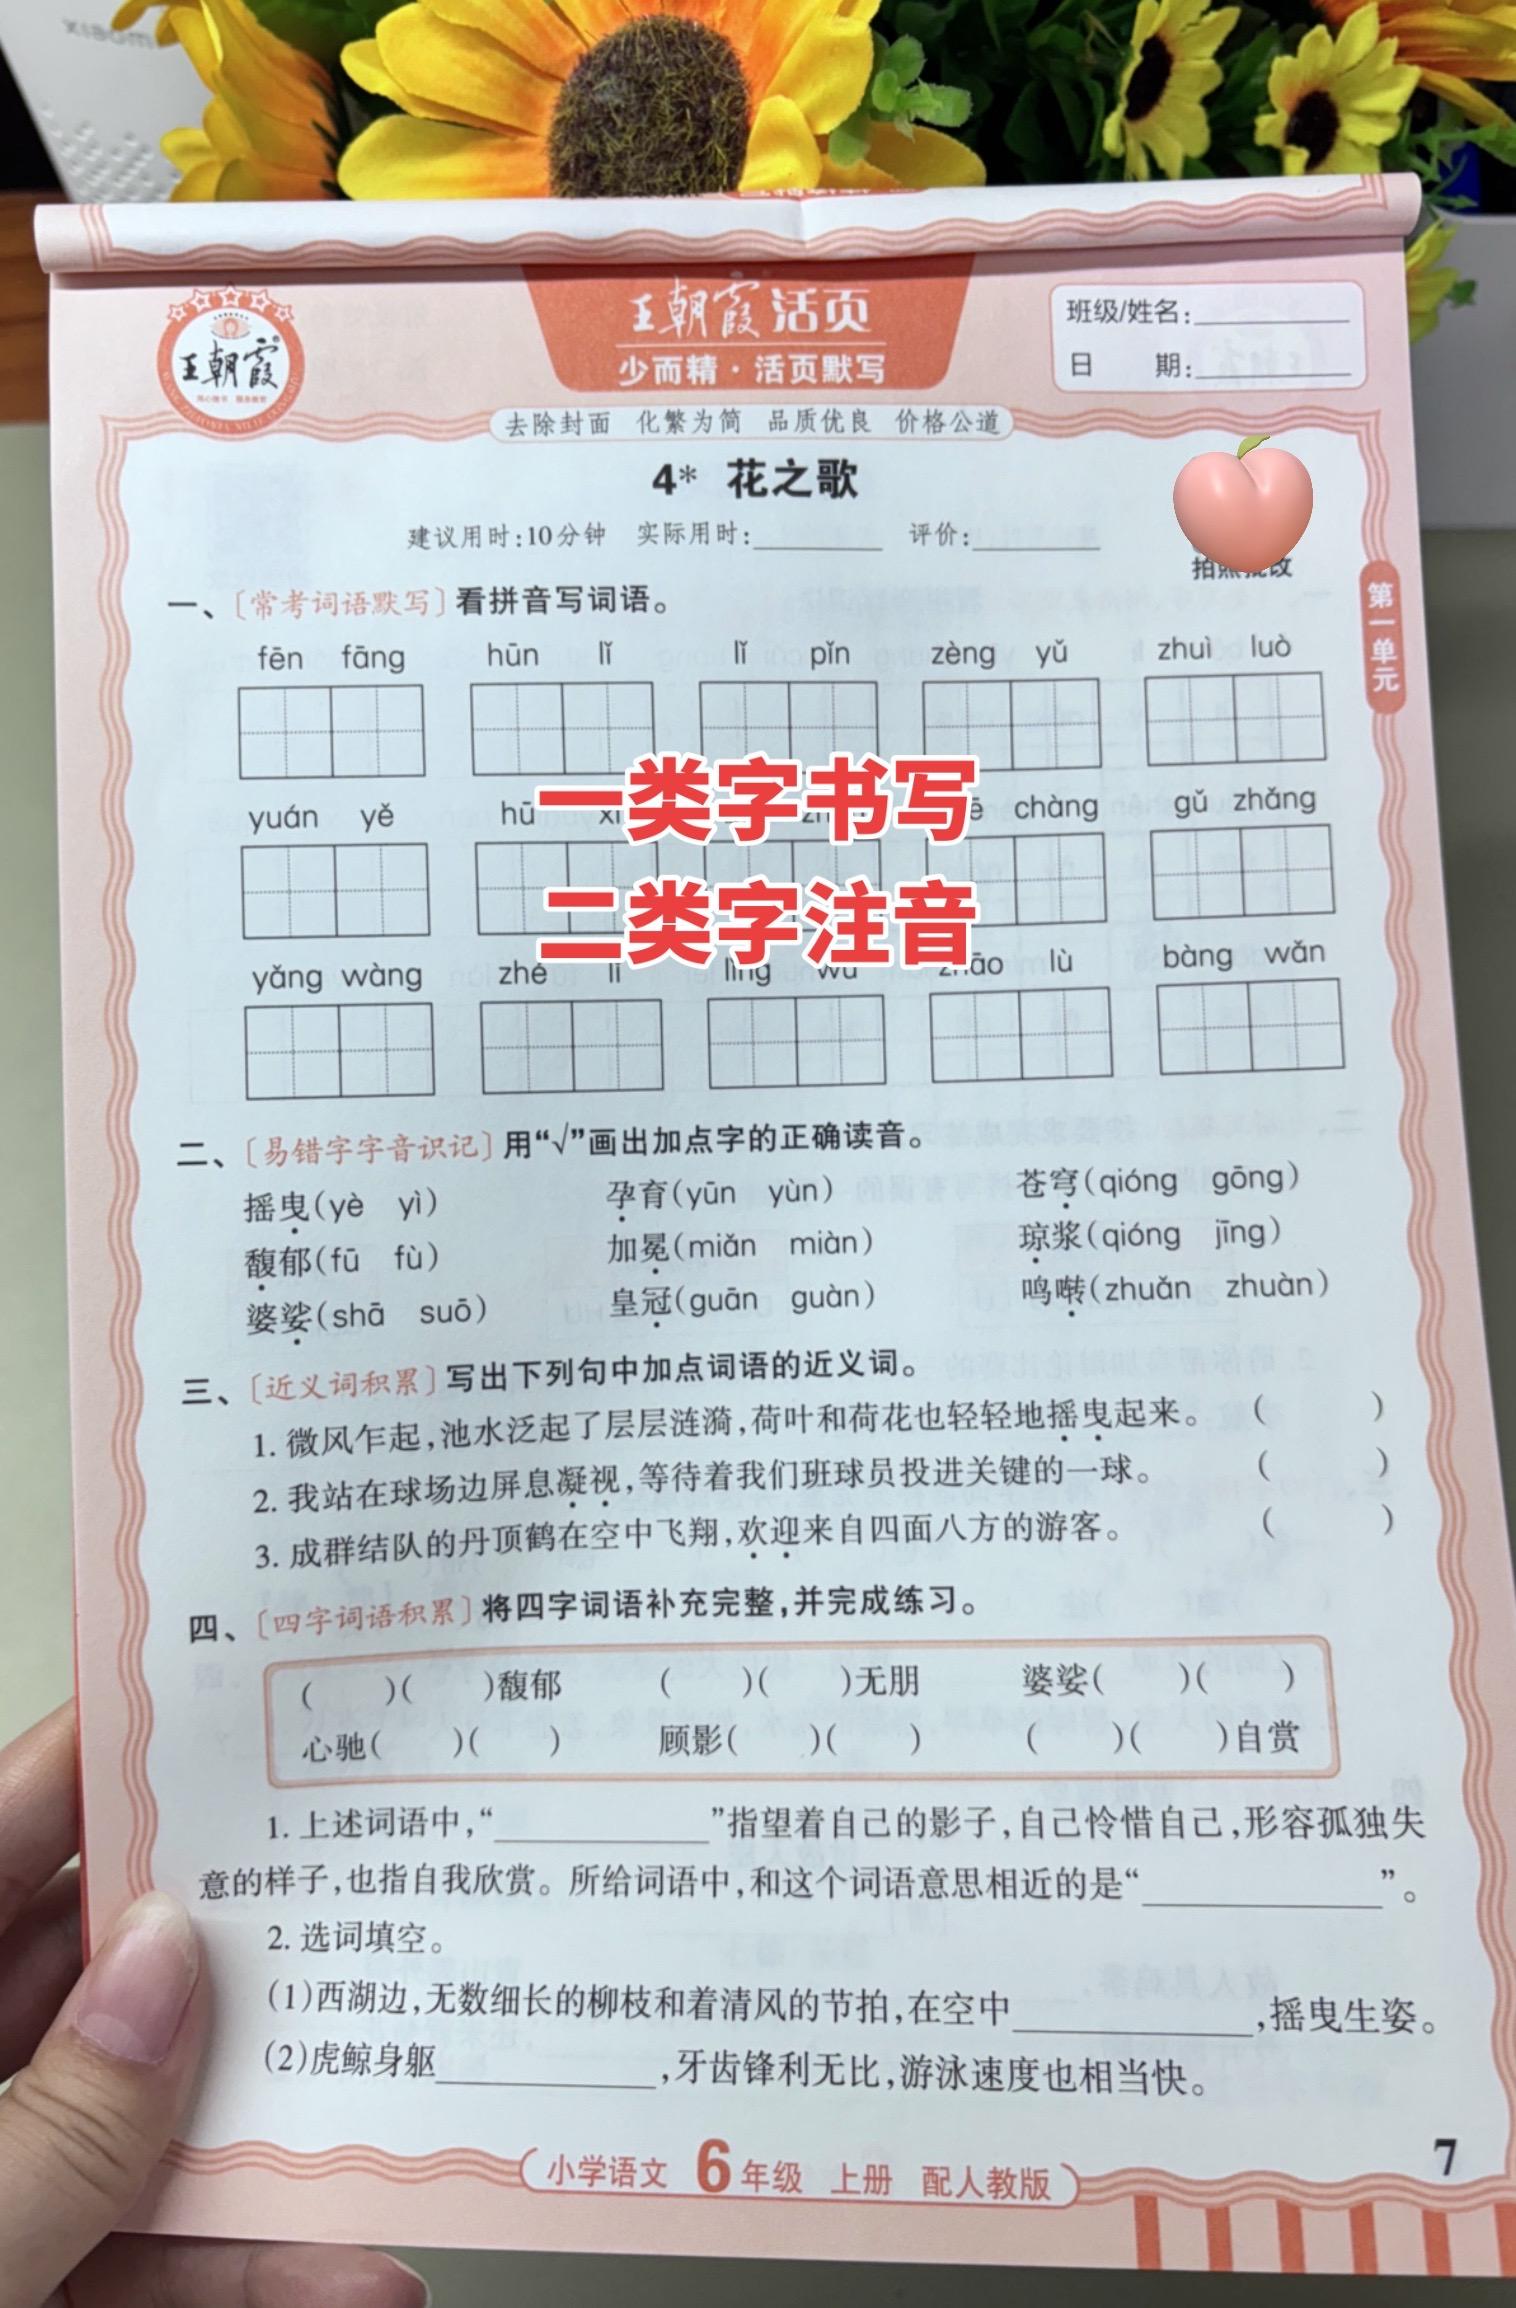 xiaomi
王朝霞
王朝霞活页
少而精·活页默写
班级/姓名:
日 期:
去除封面 化繁为简 品质优良 价格公道
4* 花之歌
建议用时:10分钟 实际用时: 评价:
拍照批改
第一单元
一、〔常考词语默写〕看拼音写词语。
fēn fāng hūn lǐ lǐ pǐn zèng yǔ zhuì luò
一类字书写
yuán yě hū chàng gǔ zhǎng
二类字注音
yǎng wàng zhé lǐ lù bàng wǎn
二、〔易错字字音识记〕用“√”画出加点字的正确读音。
摇曳(yè yì) 孕育(yūn yùn) 苍穹(qióng gōng)
馥郁(fū fù) 加冕(miǎn miàn) 琼浆(qióng jīng)
婆娑(shā suō) 皇冠(guān guàn) 鸣啭(zhuǎn zhuàn)
三、〔近义词积累〕写出下列句中加点词语的近义词。
1. 微风乍起,池水泛起了层层涟漪,荷叶和荷花也轻轻地摇曳起来。 ( )
2. 我站在球场边屏息凝视,等待着我们班球员投进关键的一球。 ( )
3. 成群结队的丹顶鹤在空中飞翔,欢迎来自四面八方的游客。 ( )
四、〔四字词语积累〕将四字词语补充完整,并完成练习。
( )( )馥郁 ( )( )无朋 婆娑( )( )
心驰( )( ) 顾影( )( ) ( )( )自赏
1. 上述词语中,“ ”指望着自己的影子,自己怜惜自己,形容孤独失
意的样子,也指自我欣赏。所给词语中,和这个词语意思相近的是“ ”。
2. 选词填空。
(1)西湖边,无数细长的柳枝和着清风的节拍,在空中 ,摇曳生姿。
(2)虎鲸身躯 ,牙齿锋利无比,游泳速度也相当快。
小学语文 6年级 上册 配人教版
7